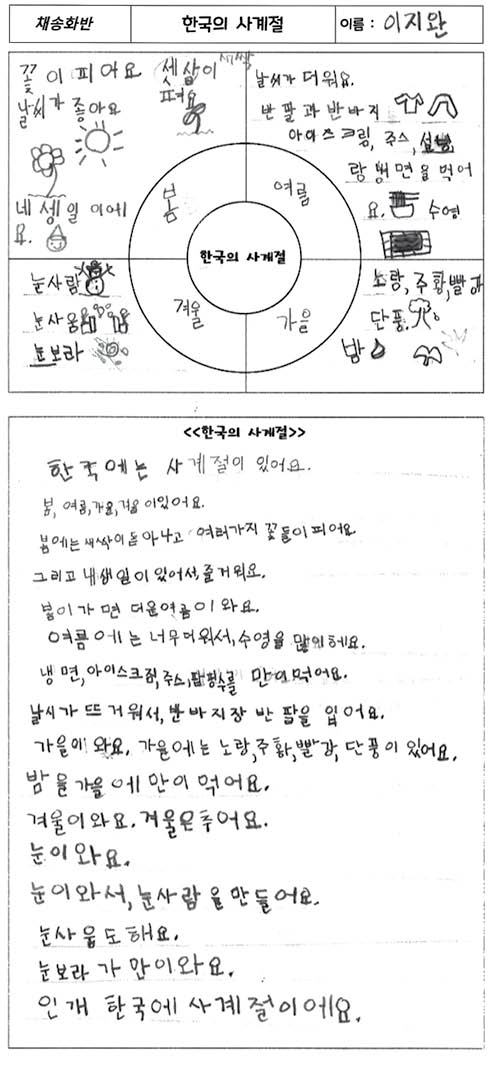 채송화반 한국의 사계절 이름 : 이지완
꽃이 피어요 셋삽이 새싹
날씨가 좋아요 펴요
네 셍일 이에
요.
봄
날씨가 더워요.
반 팔과 반바지
아이스크림, 주스,
랑 벙면을 먹어
요. 수영
여름
한국의 사계절
눈사람
눈사움
눈보라
겨울
노랑, 주황, 빨강
단풍,
밤
가을
<<한국의 사계절>>
한국에는 사계절이 있어요.
봄, 여름, 가을, 겨울이있어요.
봄에는 새싹이 돋아나고 여러가지 꽃들이 피어요.
그리고 내생일이 있어서, 즐거워요.
봄이가면 더운여름이 와요.
여름에는 너무더워서, 수영을 많의해요.
냉면, 아이스크림, 주스, 팥빙수를 만이 먹어요.
날씨가 뜨거워서, 반바지장 반팔을 입어요.
가을이 와요. 가을에는 노랑, 주황, 빨강, 단풍이 있어요.
밤을 가을에 만이 먹어요.
겨울이와요. 겨울은추어요.
눈이와요.
눈이와서, 눈사람을만들어요.
눈사움도해요.
눈보라가 만이와요.
인개 한국에 사계절이에요.